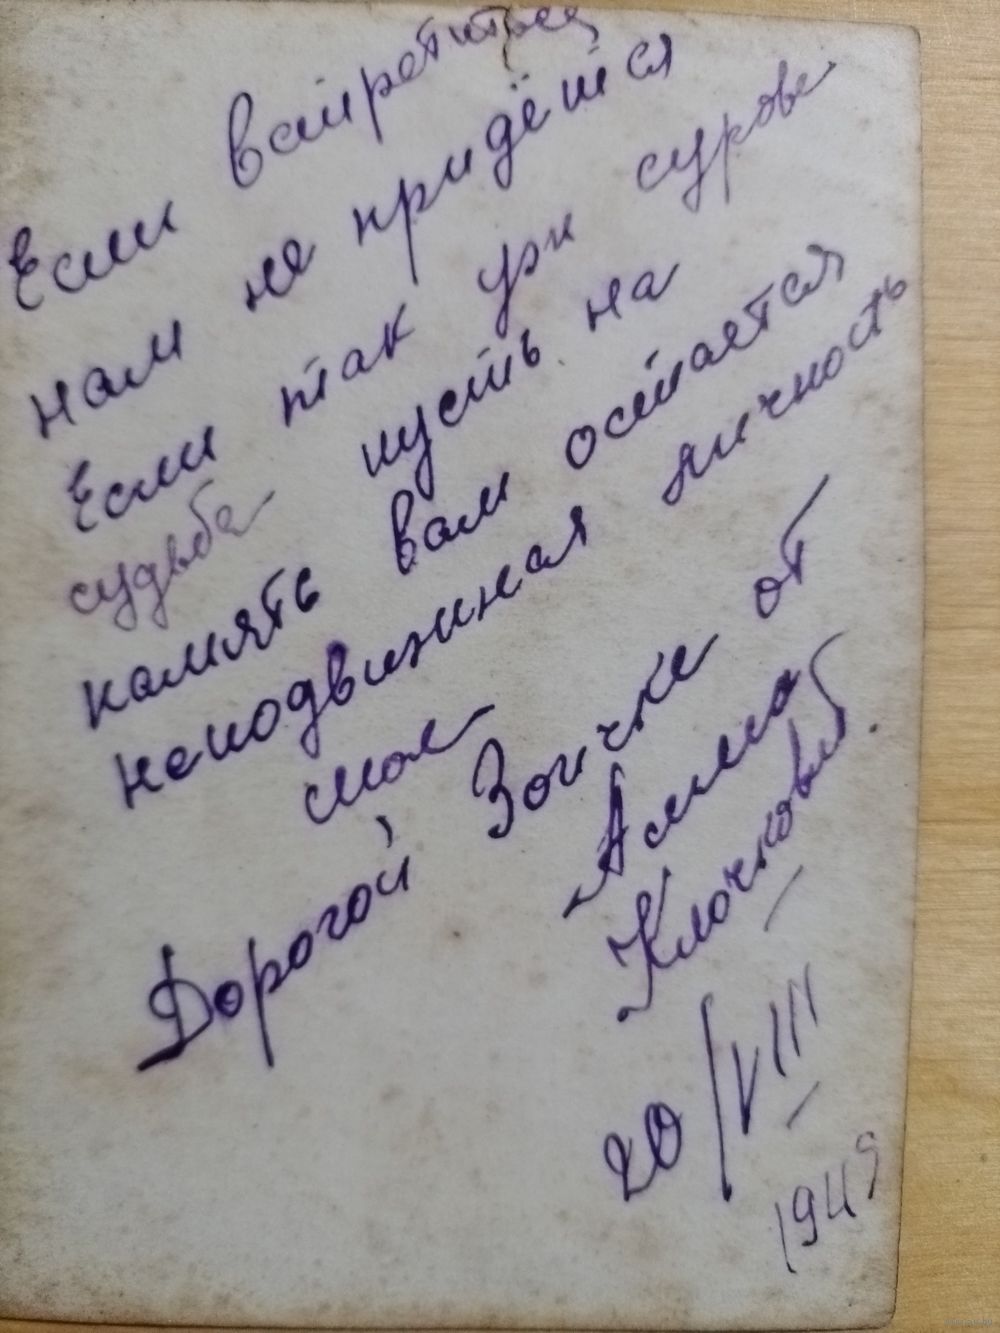 Если встретиться
нам не придётся
Если так уж сурова
судьба пусть на
память вам остается
неподвижная личность
моя
Дорогой Зоичке от
Аллы
Клочковой.
20/VIII
1949